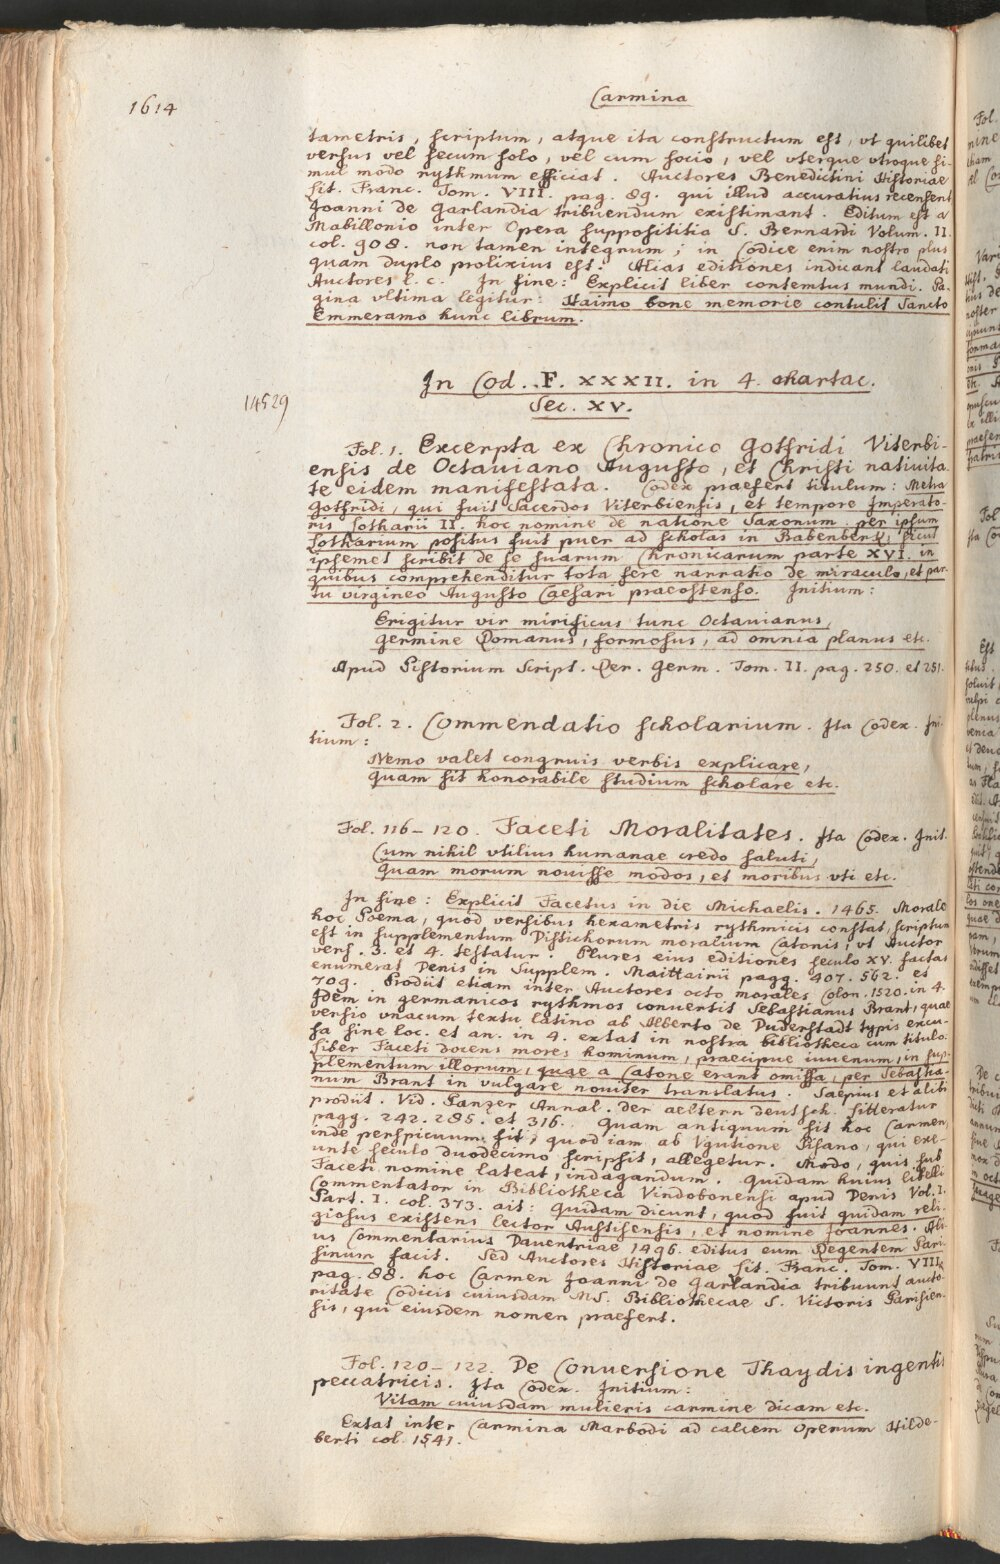 1614
Carmina
tametris, scriptum, atque ita constructum est, vt quilibet
versus vel secum solo, vel cum socio, vel vterque vtroque si-
mul modo rythmum efficiat. Auctores Benedictini Historiae
lit. Franc. Tom. VIII. pag. 89. qui illud accuratius recensent
Joanni de Garlandia tribuendum existimant. Editum est a
Mabillonio inter Opera supposititia S. Bernardi Volum. II.
col. 908. non tamen integrum; in Codice enim nostro plus
quam duplo prolixius est. Alias editiones indicant laudati
Auctores l. c. In fine: Explicit liber contemtus mundi. Pa-
gina vltima legitur: Haimo bone memorie contulit Sancto
Emmeramo hunc librum.
In Cod. F. XXXII. in 4. chartac.
14529
Sec. XV.
Fol. 1. Excerpta ex Chronico Gotfridi Viterbi-
ensis de Octauiano Augusto, et Christi natiuita-
te eidem manifestata. Codex praefert titulum: Metra
Gotfridi, qui fuit Sacerdos Viterbiensis, et tempore Imperato-
ris Lotharii II. hoc nomine de natione Saxonum per ipsum
Lotharium positus fuit puer ad scholas in Babenberg, sicut
ipsemet scribit de se suarum Chronicarum parte XVI. in
quibus comprehenditur tota fere narratio de miraculo, et par-
tu virgineo Augusto Caesari praeostenso. Initium:
Erigitur vir mirificus tunc Octauianus,
Germine Romanus, formosus, ad omnia planus etc.
Apud Pistorium Script. Rer. Germ. Tom. II. pag. 250. et 251.
Fol. 2. Commendatio scholarium. Ita Codex. Ini-
tium:
Nemo valet congruis verbis explicare,
quam sit honorabile studium scholare etc.
Fol. 116-120. Faceti Moralitates. Ita Codex. Init.
Cum nihil vtilius humanae credo saluti,
Quam morum nouisse modos, et moribus vti etc.
In fine: Explicit Facetus in die Michaelis. 1465. Morale
hoc Poema, quod versibus hexametris rythmicis constat, scriptum
est in supplementum Distichorum moralium Catonis, vt Auctor
vers. 3. et 4. testatur. Plures eius editiones seculo XV. factas
enumerat Denis in Supplem. Maittairii pagg. 407. 562. et
709. Prodiit etiam inter Auctores octo morales Colon. 1520. in 4.
Idem in germanicos rythmos conuertit Sebastianus Brant, quae
versio vnacum textu latino ab Alberto de Duderstadt typis excu-
sa sine loc. et an. in 4. extat in nostra bibliotheca cum titulo:
Liber Faceti docens mores hominum, praecipue iuuenum, in sup-
plementum illorum, quae a Catone erant omissa, per Sebastia-
num Brant in vulgare nouiter translatus. Saepius et alibi
prodiit. Vid. Panzer Annal. der aeltern deutsch. Litteratur
pagg. 242. 285. et 316. Quam antiquum sit hoc Carmen,
inde perspicuum fit, quod iam ab Vgutione Pisano, qui exe-
unte seculo duodecimo scripsit, allegetur. Modo, quis sub
Faceti nomine lateat, indagandum. Quidam huius libelli
Commentator in Bibliotheca Vindobonensi apud Denis Vol. I.
Part. I. col. 373. ait: Quidam dicunt, quod fuit quidam reli-
giosus existens lector Austisensis, et nomine Joannes. Ali-
us Commentarius Dauentriae 1496. editus eum Regentem Pari-
sinum facit. Sed Auctores Historiae lit. Franc. Tom. VIII.
pag. 88. hoc Carmen Joanni de Garlandia tribuunt aucto-
ritate Codicis cuiusdam MS. Bibliothecae S. Victoris Parisien-
sis, qui eiusdem nomen praefert.
Fol. 120-122. De Conuersione Thaydis ingentis
peccatricis. Ita Codex. Initium:
Vitam cuiusdam mulieris carmine dicam etc.
Extat inter Carmina Marbodi ad calcem Operum Hilde-
berti col. 1541.